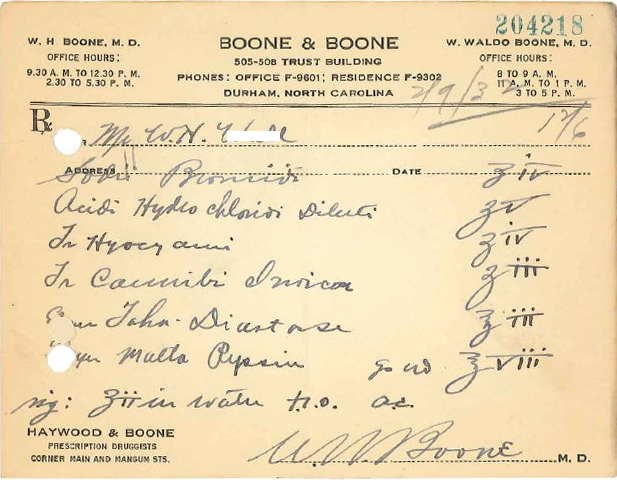 204218
W. H. BOONE, M. D.
OFFICE HOURS:
9.30 A. M. TO 12.30 P. M.
2.30 TO 5.30 P. M.
BOONE & BOONE
505-508 TRUST BUILDING
PHONES: OFFICE F-9601; RESIDENCE F-9302
DURHAM, NORTH CAROLINA
W. WALDO BOONE, M. D.
OFFICE HOURS:
8 TO 9 A. M.
11 A. M. TO 1 P. M.
3 TO 5 P. M.
2/9/32
Rx Mr W. H.
ADDRESS DATE
Sodii Bromidi ʒ iv
Acidi Hydrochloridi Diluti ʒ v
Tr Hyocyami ʒ iv
Tr Cannibi Indica ʒ iii
Taka-Diastase ℥ iii
Malto Pepsin ℥ viii
sig: ʒ ii in water t.i.d. a.c.
HAYWOOD & BOONE
PRESCRIPTION DRUGGISTS
CORNER MAIN AND MANGUM STS.
W. W. Boone M. D.